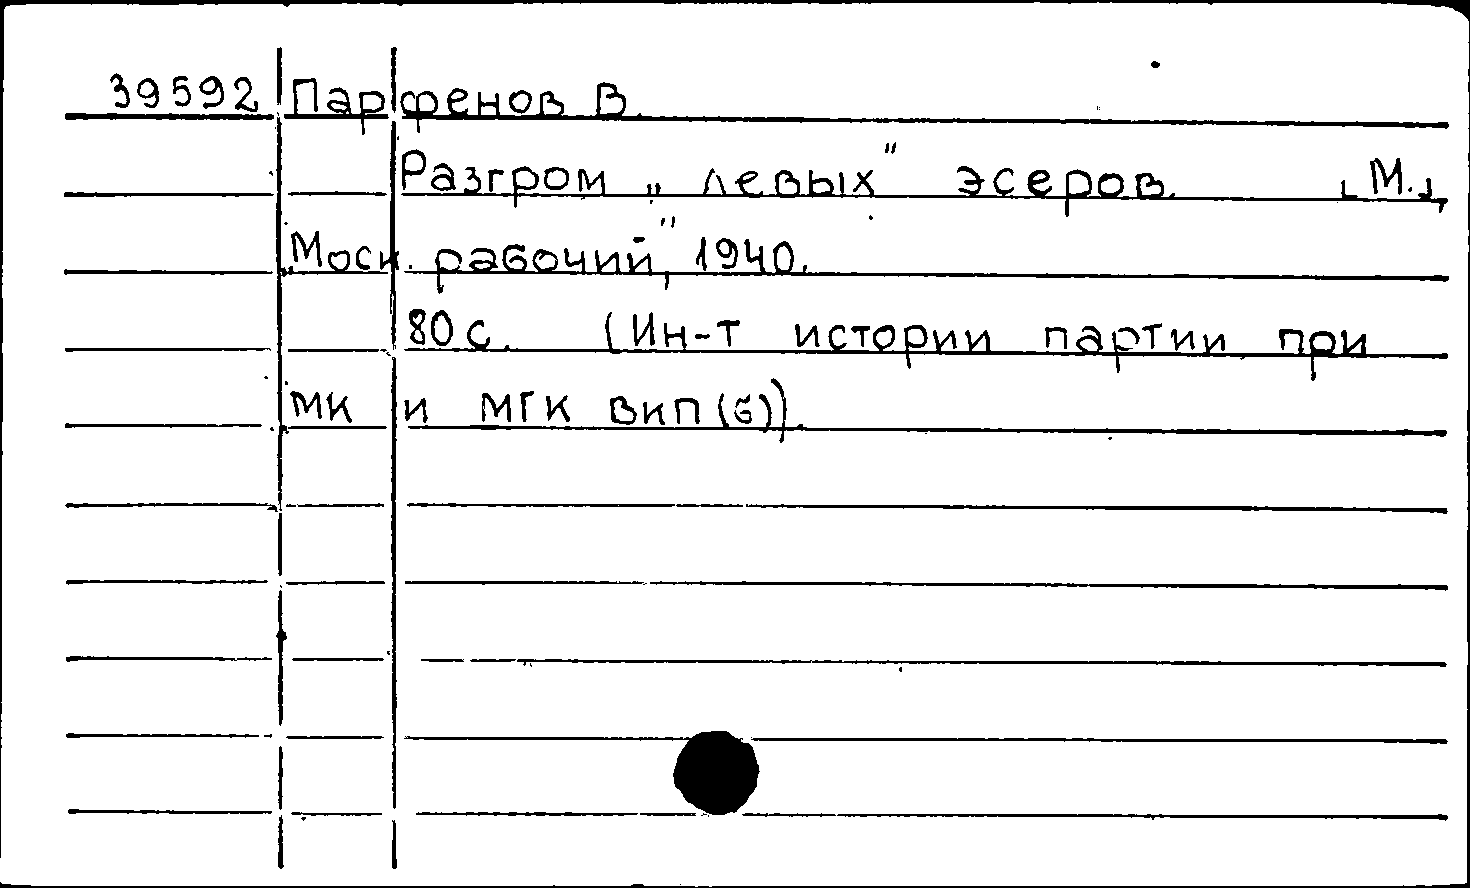 39592 Парфенов В.
Разгром „левых" эсеров. [М.],
„Моск. рабочий", 1940.
80 с. (Ин-т истории партии при
МК и МГК ВКП(б)).